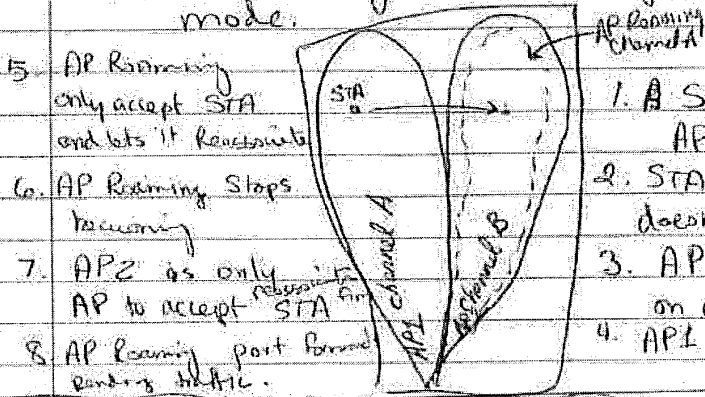 mode.
5 AP Roaming
only accept STA
and lets it Reassociate
6. AP Roaming Stops
7. AP2 is only
AP to accept STA
8 AP Roaming port forward
pending traffic.
STA
AP1 channel A
Channel B
AP Roaming
Channel A
1. A S
AP
2. STA
does
3. AP
on
4. AP1